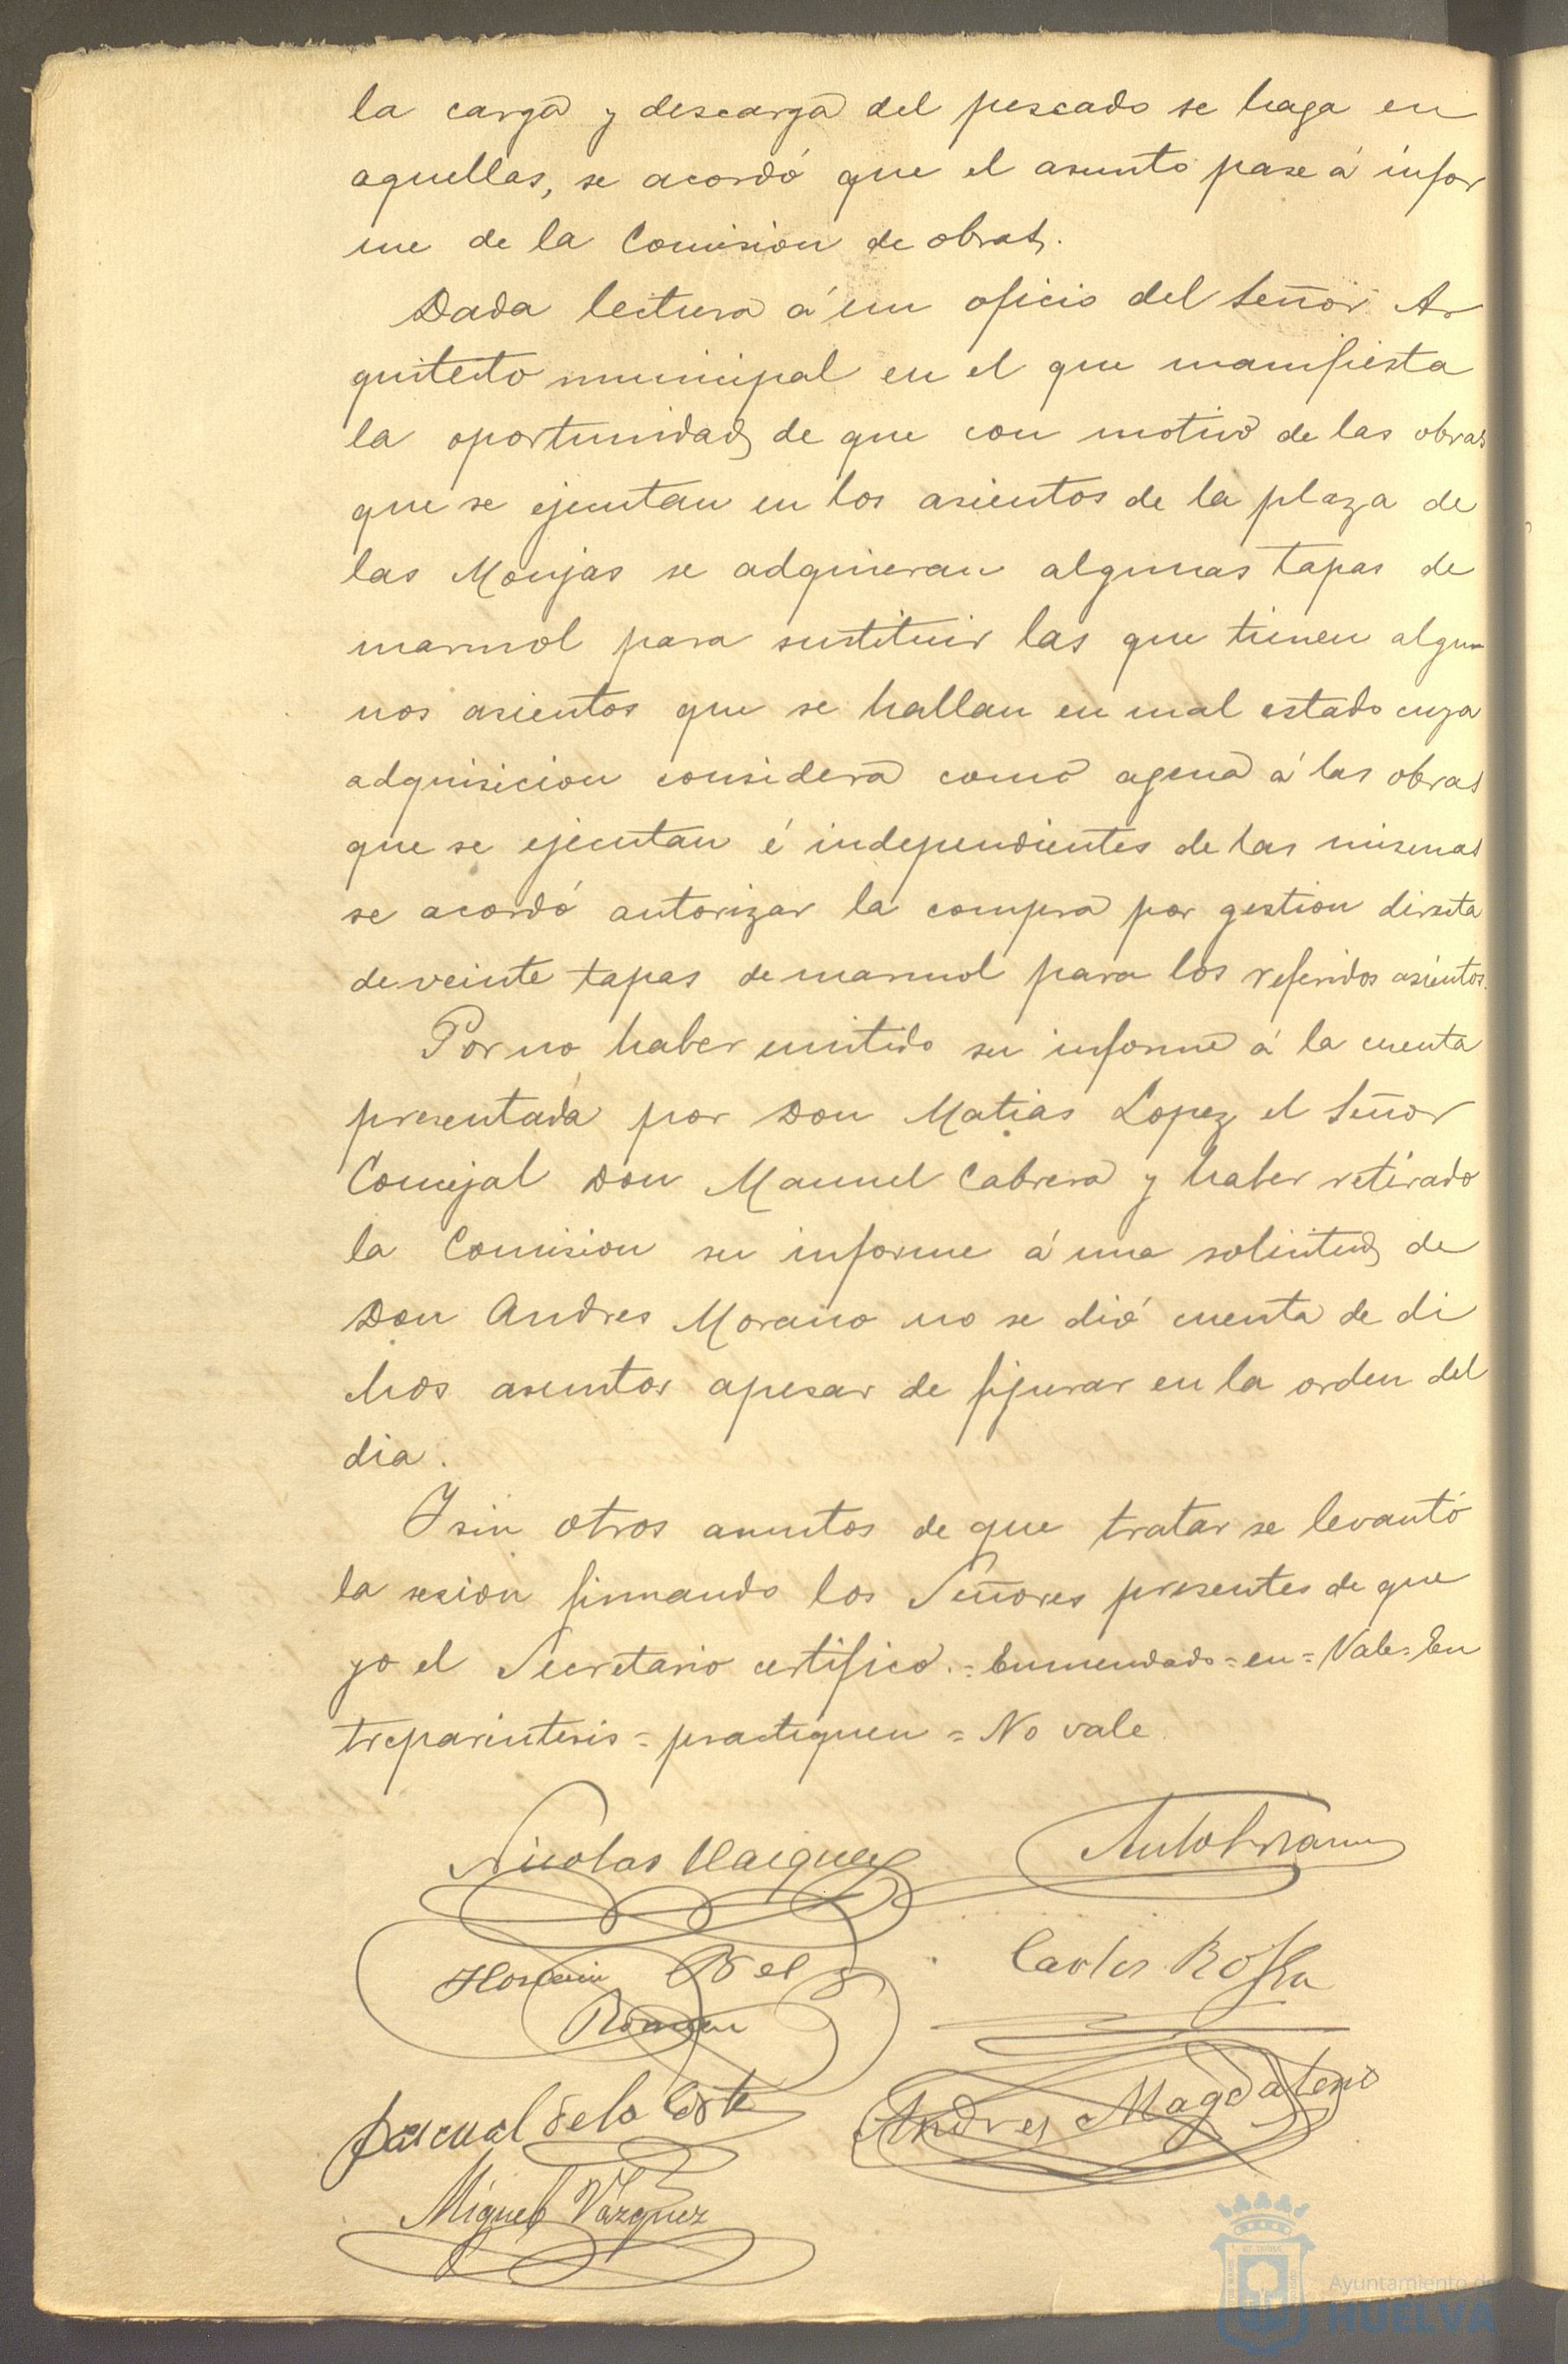 la carga y descarga del pescado se haga en
aquellas, se acordó que el asunto pase á infor
me de la Comision de obras.
Dada lectura á un oficio del Señor Ar
quitecto municipal en el que manifiesta
la oportunidad de que con motivo de las obras
que se ejecutan en los asientos de la plaza de
las Monjas se adquieran algunas tapas de
marmol para sustituir las que tienen algu
nos asientos que se hallan en mal estado cuya
adquisicion considera como agena á las obras
que se ejecutan é independientes de las mismas
se acordó autorizar la compra por gestion directa
de veinte tapas de marmol para los referidos asientos.
Por no haber emitido su informe á la cuenta
presentada por Don Matias Lopez el Señor
Concejal Don Manuel Cabrera y haber retirado
la Comision su informe á una solicitud de
Don Andres Moraño no se dió cuenta de di
chos asuntos apesar de figurar en la orden del
dia.
Y sin otros asuntos de que tratar se levantó
la sesion firmando los Señores presentes de que
yo el Secretario certifico.=Enmendado=en=Vale=En
treparintesis=practiquen=No vale.
Nicolas Vazquez
Carlos
Pascual de la Corte
Andres Magdaleno
Miguel Vázquez
Ayuntamiento de
HUELVA